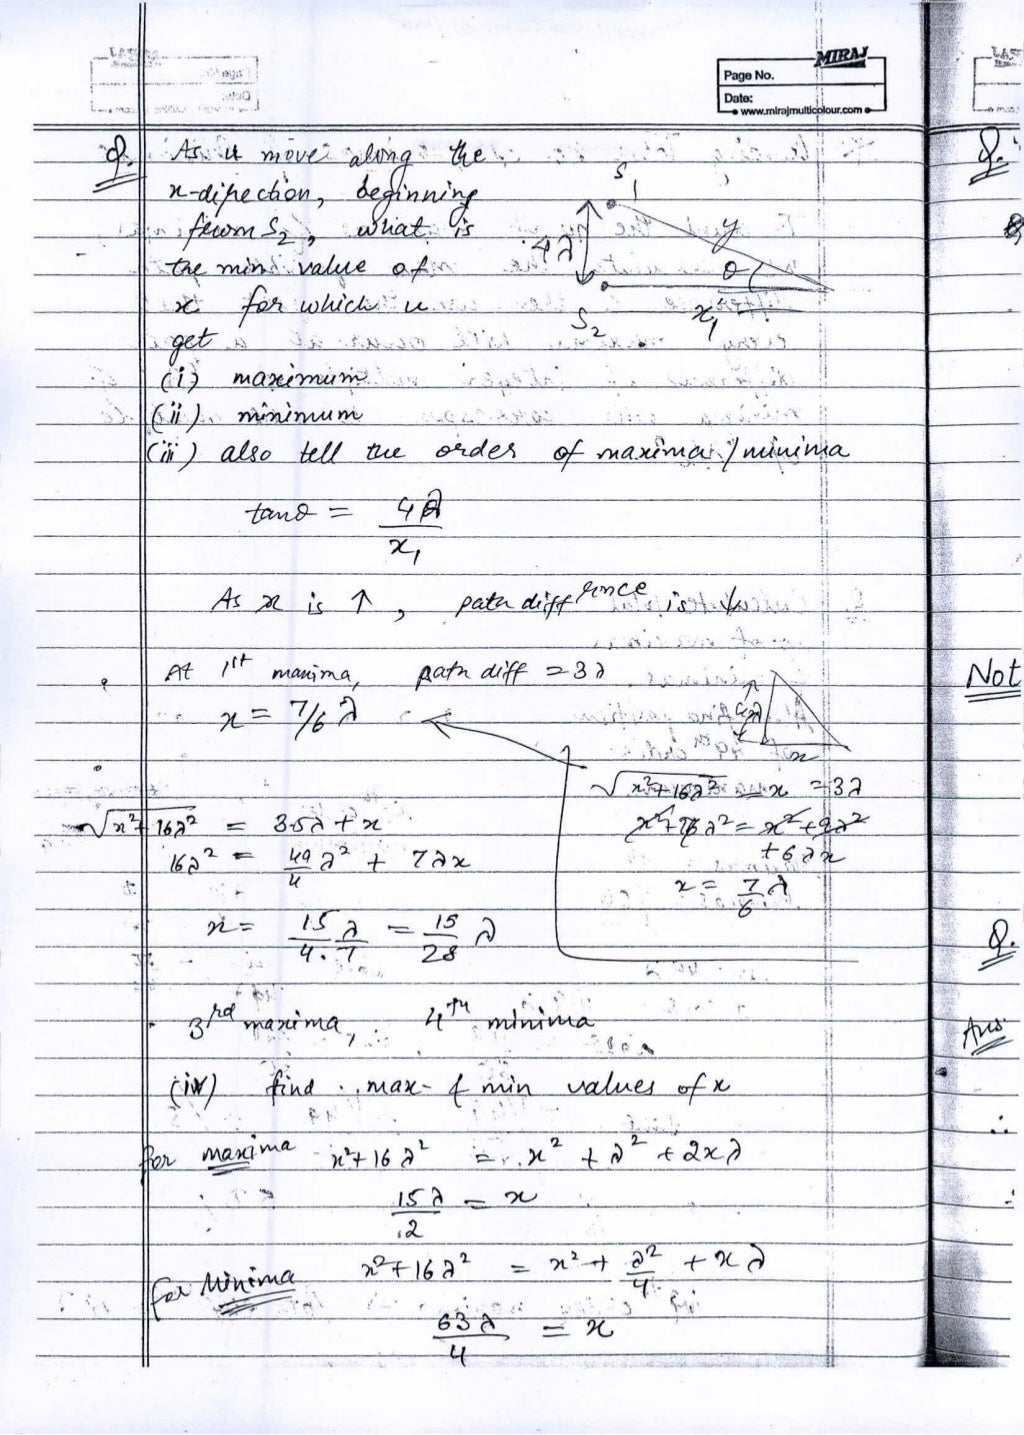 MIRAJ
Page No.
Date:
www.mirajmulticolour.com
Q. As u move along the
x-direction, beginning
from S₂, what is
the min value of
x for which u
get
(i) maximum
(ii) minimum
(iii) also tell the order of maxima/minima
S₁
4λ
y
θ
S₂
x₁
tanθ = 4λ/x₁
As x is ↑, path difference is ↓
At 1st maxima, path diff = 3λ
x = 7/6 λ
4λ
x
√x²+16λ² - x = 3λ
x²+16λ² = x²+9λ²
+6λx
x = 7/6 λ
√x²+16λ² = 3.5λ + x
16λ² = 49/4 λ² + 7λx
x = 15/4.7 λ = 15/28 λ
3rd maxima, 4th minima
(iv) find max & min values of x
for maxima x²+16λ² = x² + λ² + 2xλ
15λ/2 = x
for Minima x²+16λ² = x² + λ²/4 + xλ
63λ/4 = x
Q.
Not
Q.
Ans
∴